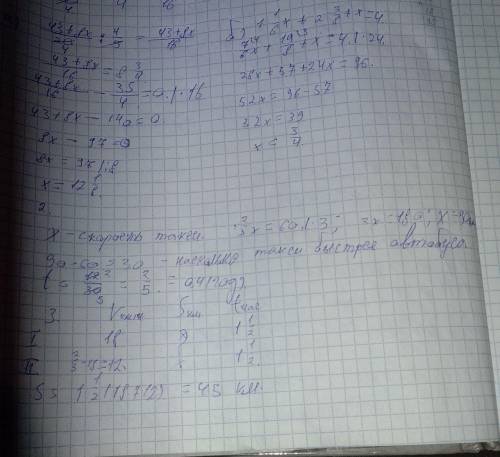 43+8x / 16 = 8 3/4
43+8x / 16 - 35/4 = 0 | · 16
43+8x - 140 = 0
8x - 97 = 0
8x = 97 | : 8
x = 12 1/8
б) 1 1/6 x + 2 3/8 + x = 4
7/6 x + 19/8 + x = 4 | · 24
28x + 57 + 24x = 96
52x = 96 - 57
52x = 39
x = 3/4
2.
X - скорость такси. 2/3 x = 60 | · 3; 2x = 180; X = 90
90 - 60 = 30 - насколько такси быстрее автобуса
t = 12/30 = 2/5 = 0,4 (год).
3. V км/ч S км t час
I 18 ? 1 1/2
II 2/3 · 18 = 12. 1 1/2
S = 1 1/2 (18+12) = 45 км.